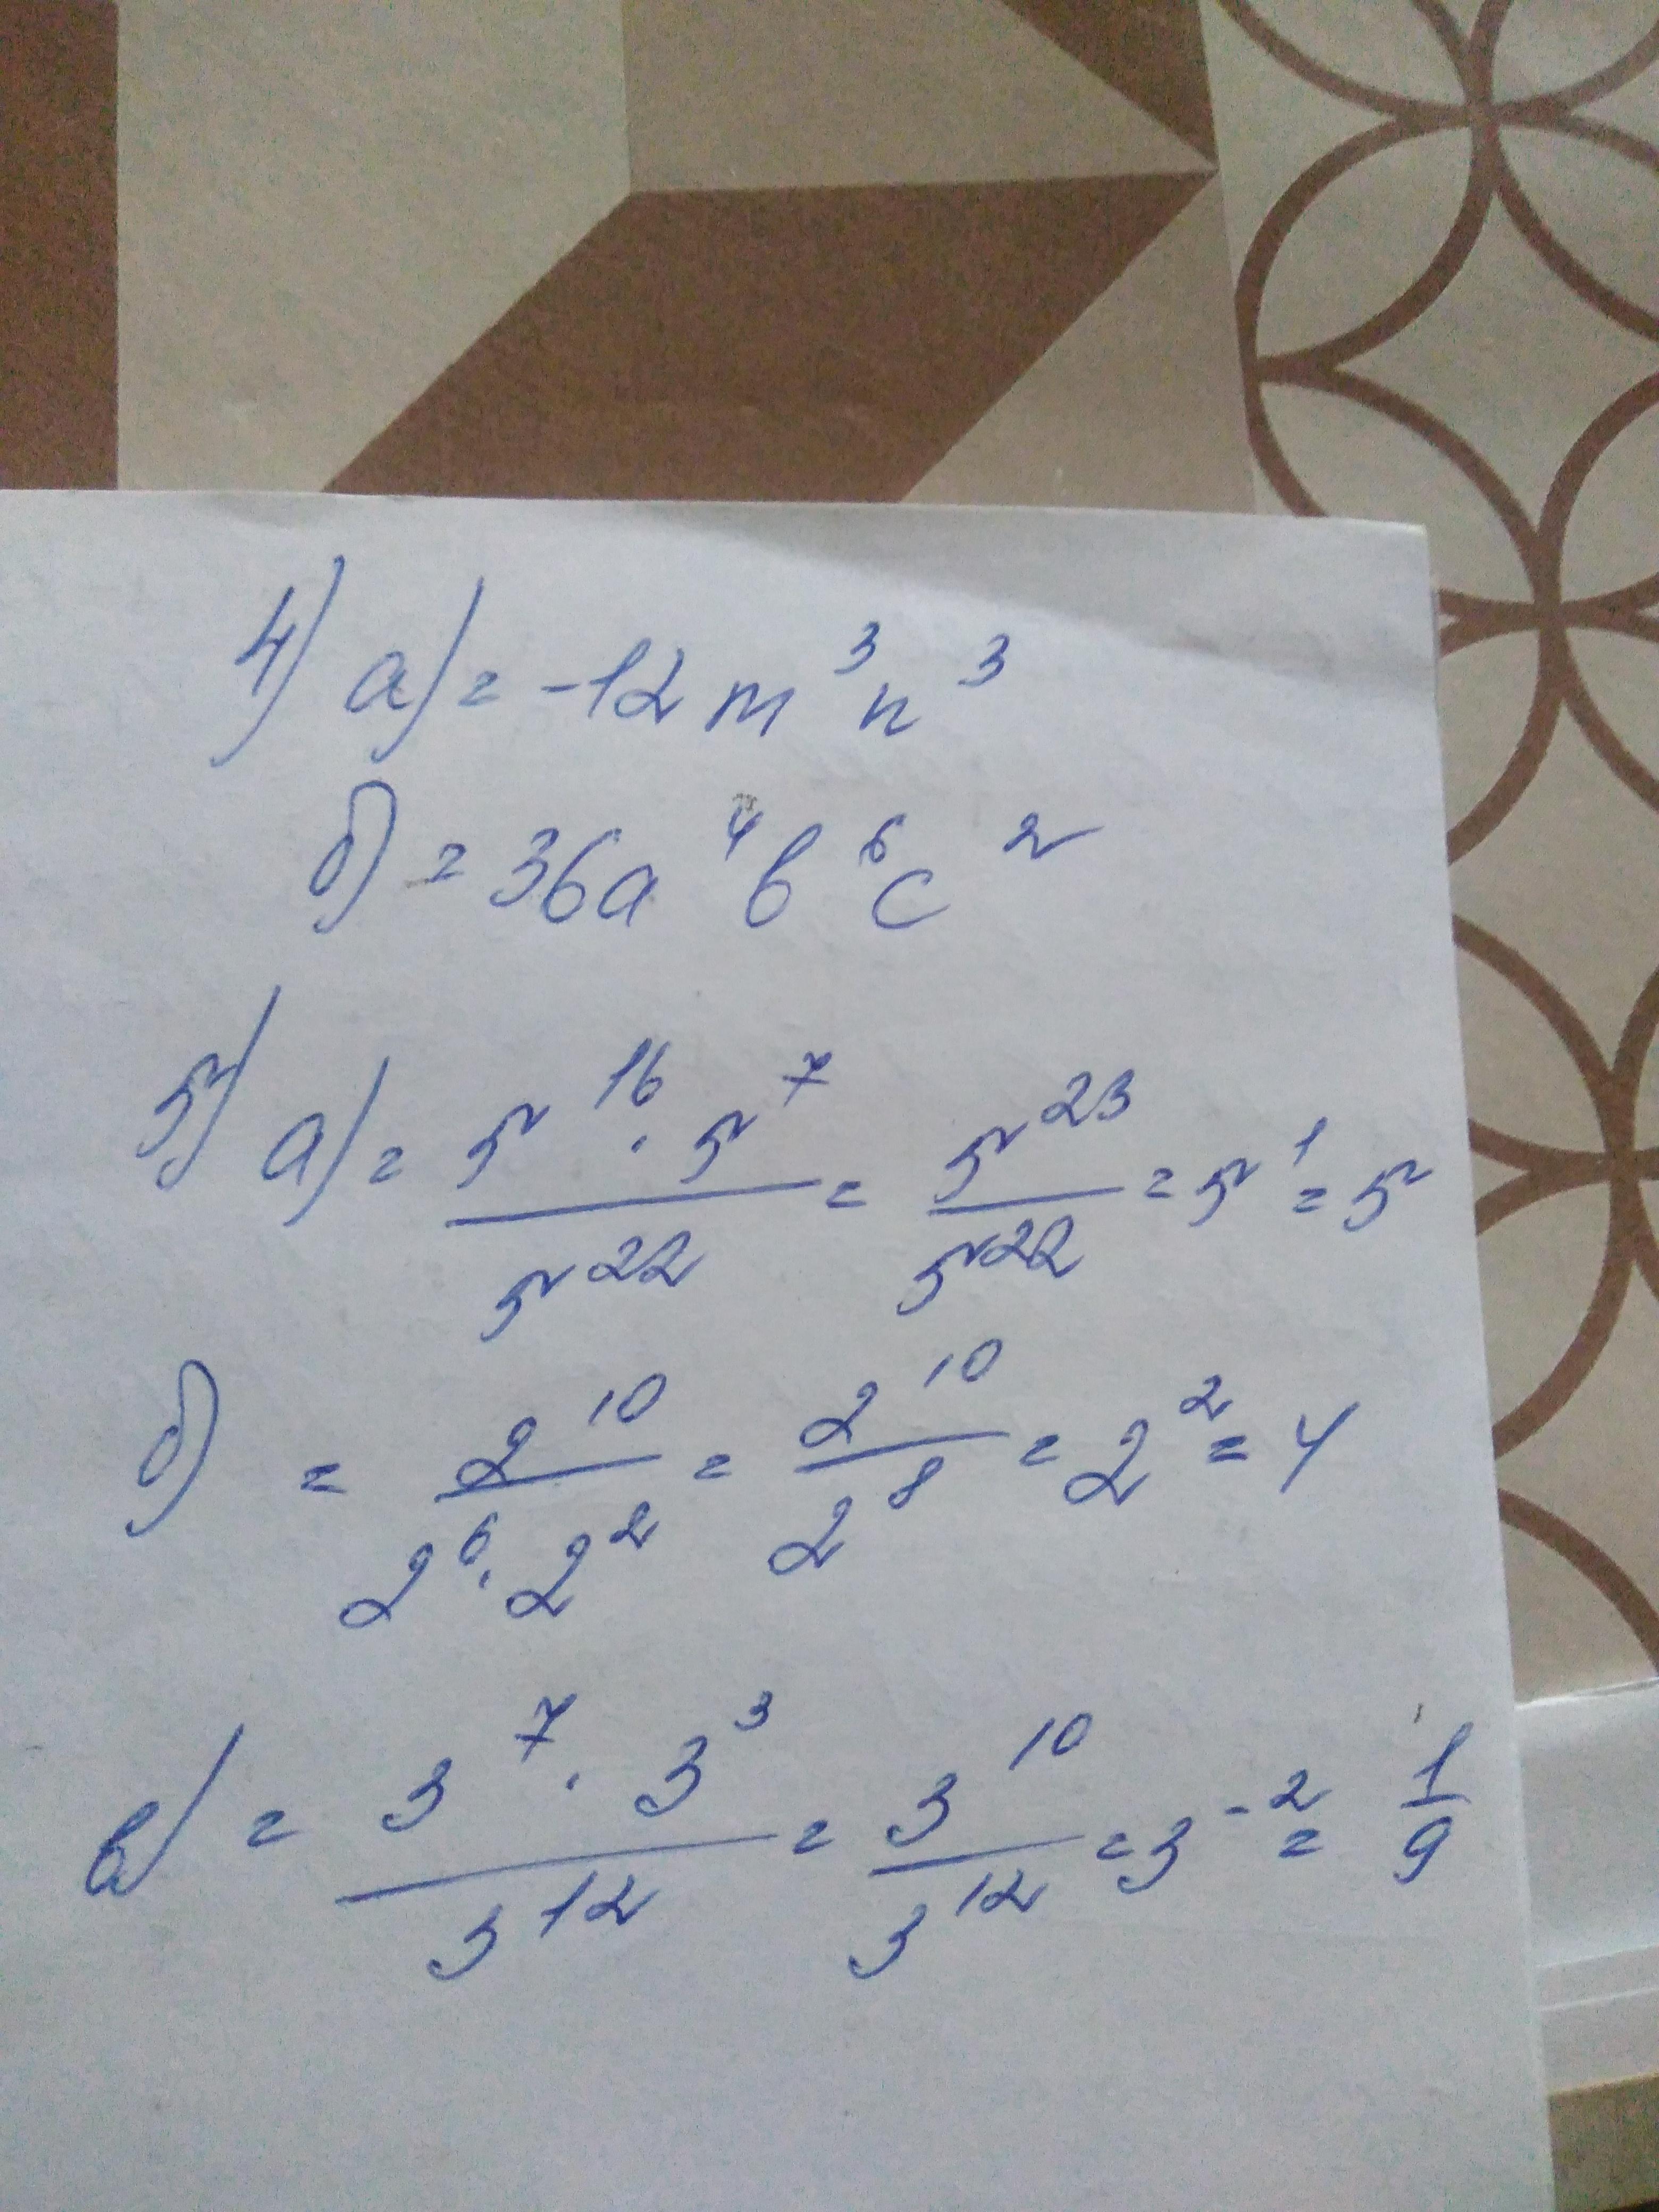 4) а) = -12m³n³
б) = 36a⁴b⁶c²
5) а) = 5¹⁶ · 5⁷ / 5²² = 5²³ / 5²² = 5¹ = 5
б) = 2¹⁰ / 2⁶ · 2² = 2¹⁰ / 2⁸ = 2² = 4
в) = 3⁷ · 3³ / 3¹² = 3¹⁰ / 3¹² = 3⁻² = 1/9